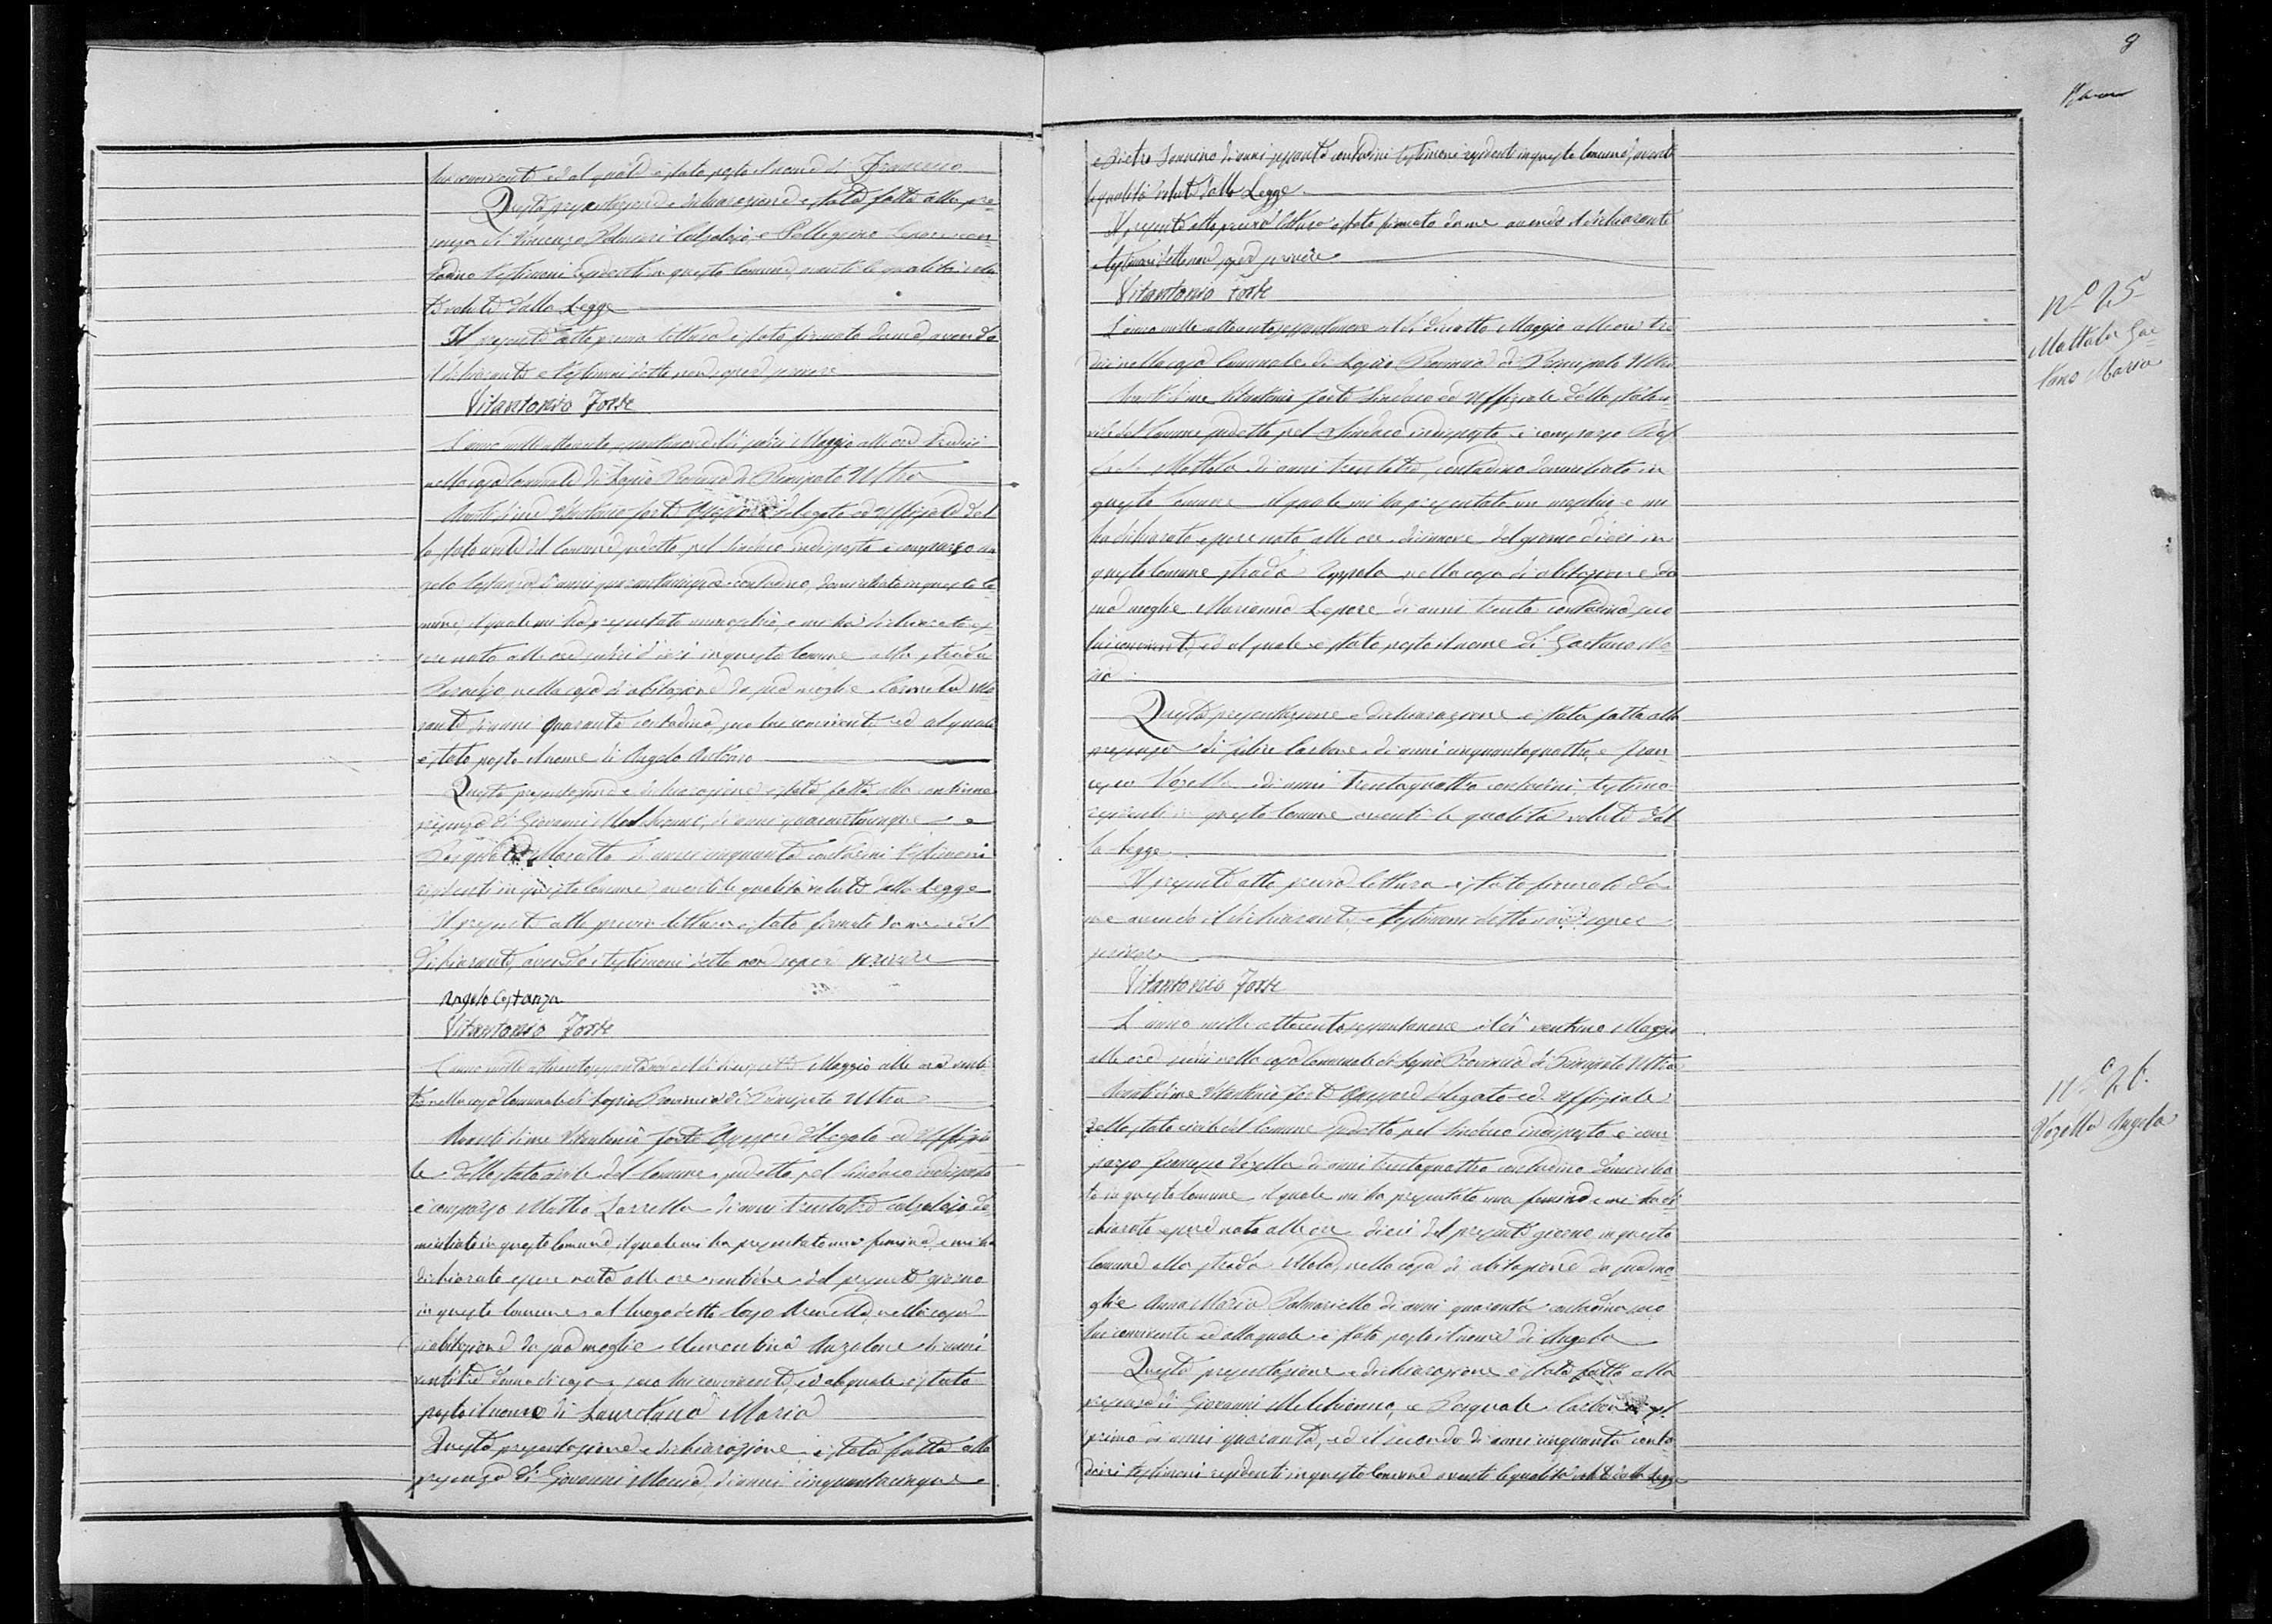 lui convivente ed al quale è stato posto il nome di Francesco
Questa presentazione e dichiarazione è stata fatta alla pre=
senza di Vincenzo Palmieri Calzolajo, e Pellegrino Lepore con=
tadino testimoni residenti in questo Comune aventi le qualità volu
te volute dalla Legge
Il presente atto previa lettura è stato firmato da me avendo
il dichiarante e testimoni detto non saper scrivere
Vitantonio Forte
L'anno mille ottocento sessantanove il dì sedici Maggio alle ore tredici
nella casa Comunale di Lapio Provincia di Principato Ultra
Avanti di me Vitantonio Forte Assessore delegato ed uffiziale del
lo stato civile del Comune sudetto, pel Sindaco indisposto è comparso An
gelo Costanza di anni quarantacinque contadino, domiciliato in questo Co=
mune, il quale mi ha presentato un maschio, e mi ha dichiarato es=
sere nato alle ore sedici d'ieri in questo Comune alla strada
nella casa di abitazione da sua moglie Carmela
di anni quaranta contadina, seco lui convivente ed al quale
è stato posto il nome di Angelo Antonio
Questa presentazione e dichiarazione è stata fatta alla continua
presenza di Giovanni Melchionna, di anni quarantacinque e
Pasquale di anni cinquanta contadini testimoni
residenti in questo Comune aventi le qualità volute dalla Legge
Il presente atto previa lettura è stato firmato da me e dal
dichiarante, avendo i testimoni detto non saper scrivere
Angelo Costanza
Vitantonio Forte
L'anno mille ottocento sessantanove il dì Maggio alle ore venti
tre nella casa Comunale di Lapio Provincia di Principato Ultra
Avanti di me Vitantonio Forte Assessore delegato ed Uffizia
le dello stato civile del Comune sudetto, pel Sindaco indisposto
è comparso Mattia Zarrella di anni trentatre calzolajo, do=
miciliato in questo Comune, il quale mi ha presentato una femina, e mi ha
dichiarato essere nata alle ore ventidue del presente giorno
in questo Comune al luogo detto largo nella casa
di abitazione da sua moglie Clementina Anzalone di anni
ventitre donna di casa, seco lui convivente, ed al quale è stato
posto il nome di Lauretana Maria
Questa presentazione e dichiarazione è stata fatta alla
presenza di Giovanni Moccia, di anni cinquantacinque
9
e Pietro Jannino di anni sessanta contadini testimoni residenti in questo Comune, aventi
le qualità volute dalla Legge
Il presente atto, previa lettura è stato firmato da me avendo il dichiarante
e testimoni detto non saper scrivere
Vitantonio Forte
L'anno mille ottocento sessantanove il dì dieciotto Maggio alle ore tre
dici nella casa Comunale di Lapio Provincia di Principato Ultra
Avanti di me Vitantonio Forte Sindaco ed Uffiziale dello stato ci
vile del Comune sudetto pel Sindaco indisposto, è comparso
Mottola di anni trentatre, contadino domiciliato in
questo Comune il quale mi ha presentato un maschio e mi
ha dichiarato essere nato alle ore dicianove del giorno di ieri in
questo Comune strada Cappela nella casa di abitazione da
sua moglie Marianna Lepore di anni trenta contadina, seco
lui convivente, ed al quale è stato posto il nome di Gaetano Ma=
ria
Questa presentazione e dichiarazione è stata fatta alla
presenza di Felice Carbone di anni cinquantaquattro, e Fran
cesco Vozella di anni trentaquattro contadini, testimo
residenti in questo Comune aventi le qualità volute dal
la legge
Il presente atto previa lettura è stato firmato da
me avendo il dichiarante e testimoni detto non saper
scrivere
Vitantonio Forte
L'anno mille ottocento sessantanove il dì ventuno Maggio
alle ore sedici nella casa Comunale di Lapio Provincia di Principato Ultra
Avanti di me Vitantonio Forte Assessore delegato ed Uffiziale
dello stato civile del Comune sudetto pel Sindaco indisposto, è com
parso Francesco Vozella di anni trentaquattro contadino domicilia
to in questo Comune il quale mi ha presentato una femina e mi ha di
chiarato essere nata alle ore dieci del presente giorno in questo
Comune alla strada nella casa di abitazione da sua mo=
glie Anna Maria Palmariello di anni quaranta contadina seco
lui convivente ed alla quale è stato posto il nome di Angela
Questa presentazione e dichiarazione è stata fatta alla
presenza di Giovanni Melchionna, e Pasquale Carbone il
primo di anni quaranta, ed il secondo di anni cinquanta conta
dini testimoni residenti in questo Comune aventi le qualità volute dalla Legge
N.o 25
Mottola Gae=
tano Maria
N.o 26.
Vozella Angela